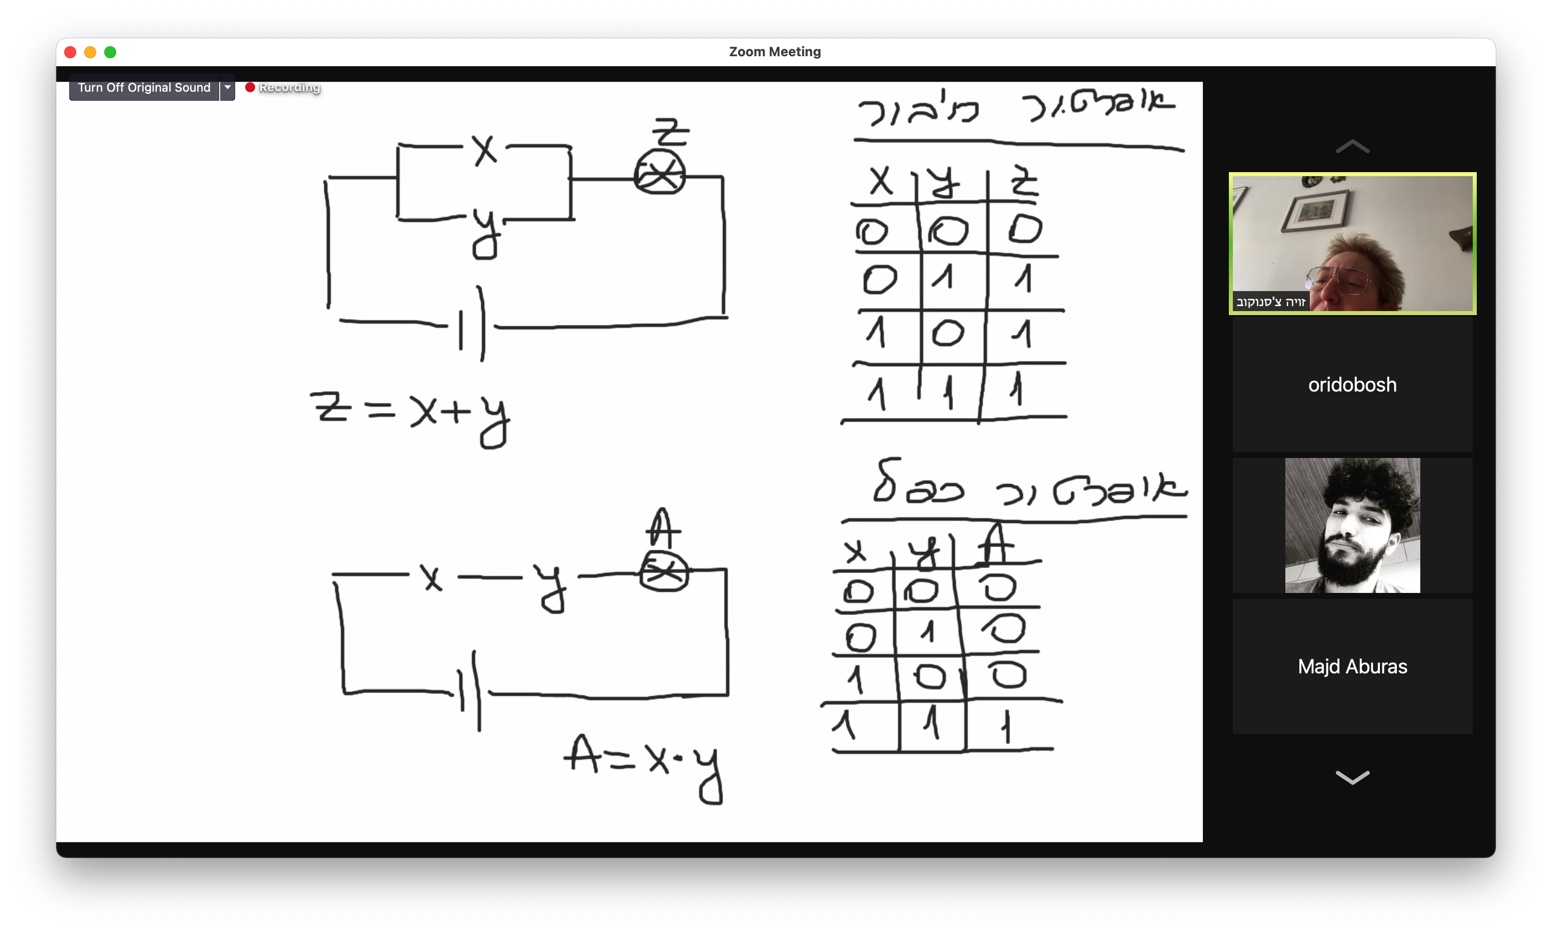 Zoom Meeting
Turn Off Original Sound
Recording
אופרטור חיבור
x y z
0 0 0
0 1 1
1 0 1
1 1 1
z
x
y
z = x+y
אופרטור כפל
x y A
0 0 0
0 1 0
1 0 0
1 1 1
A
x y
A = x·y
זויה צ'סנוקוב
oridobosh
Majd Aburas